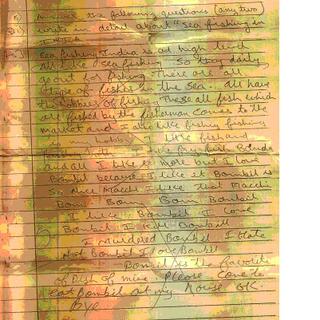 Answer the following questions (any two)
write in detail about "Sea fishing in
Sea fishing India is at high level
all like sea fishing. So they daily
go out for fishing. There are all
type of fishes in the sea. all have
the hobbies of fishing. These all fish which
are fished by the fisherman comes to the
market and I also like fishing fishing
is my hobby. I like fish and
and all I like it more but I love
Bombil because I like it Bombil is
so nice Macchi I like that Macchi
Bom Bom Bom Bombil
I like Bombil I love
Bombil I kill Bombil
I murdered Bombil I Hate
Not Bombil I love Bombil
Bombil is the favorite
of Dish of mine. Please come to
eat Bombil at my house ok.
Bye